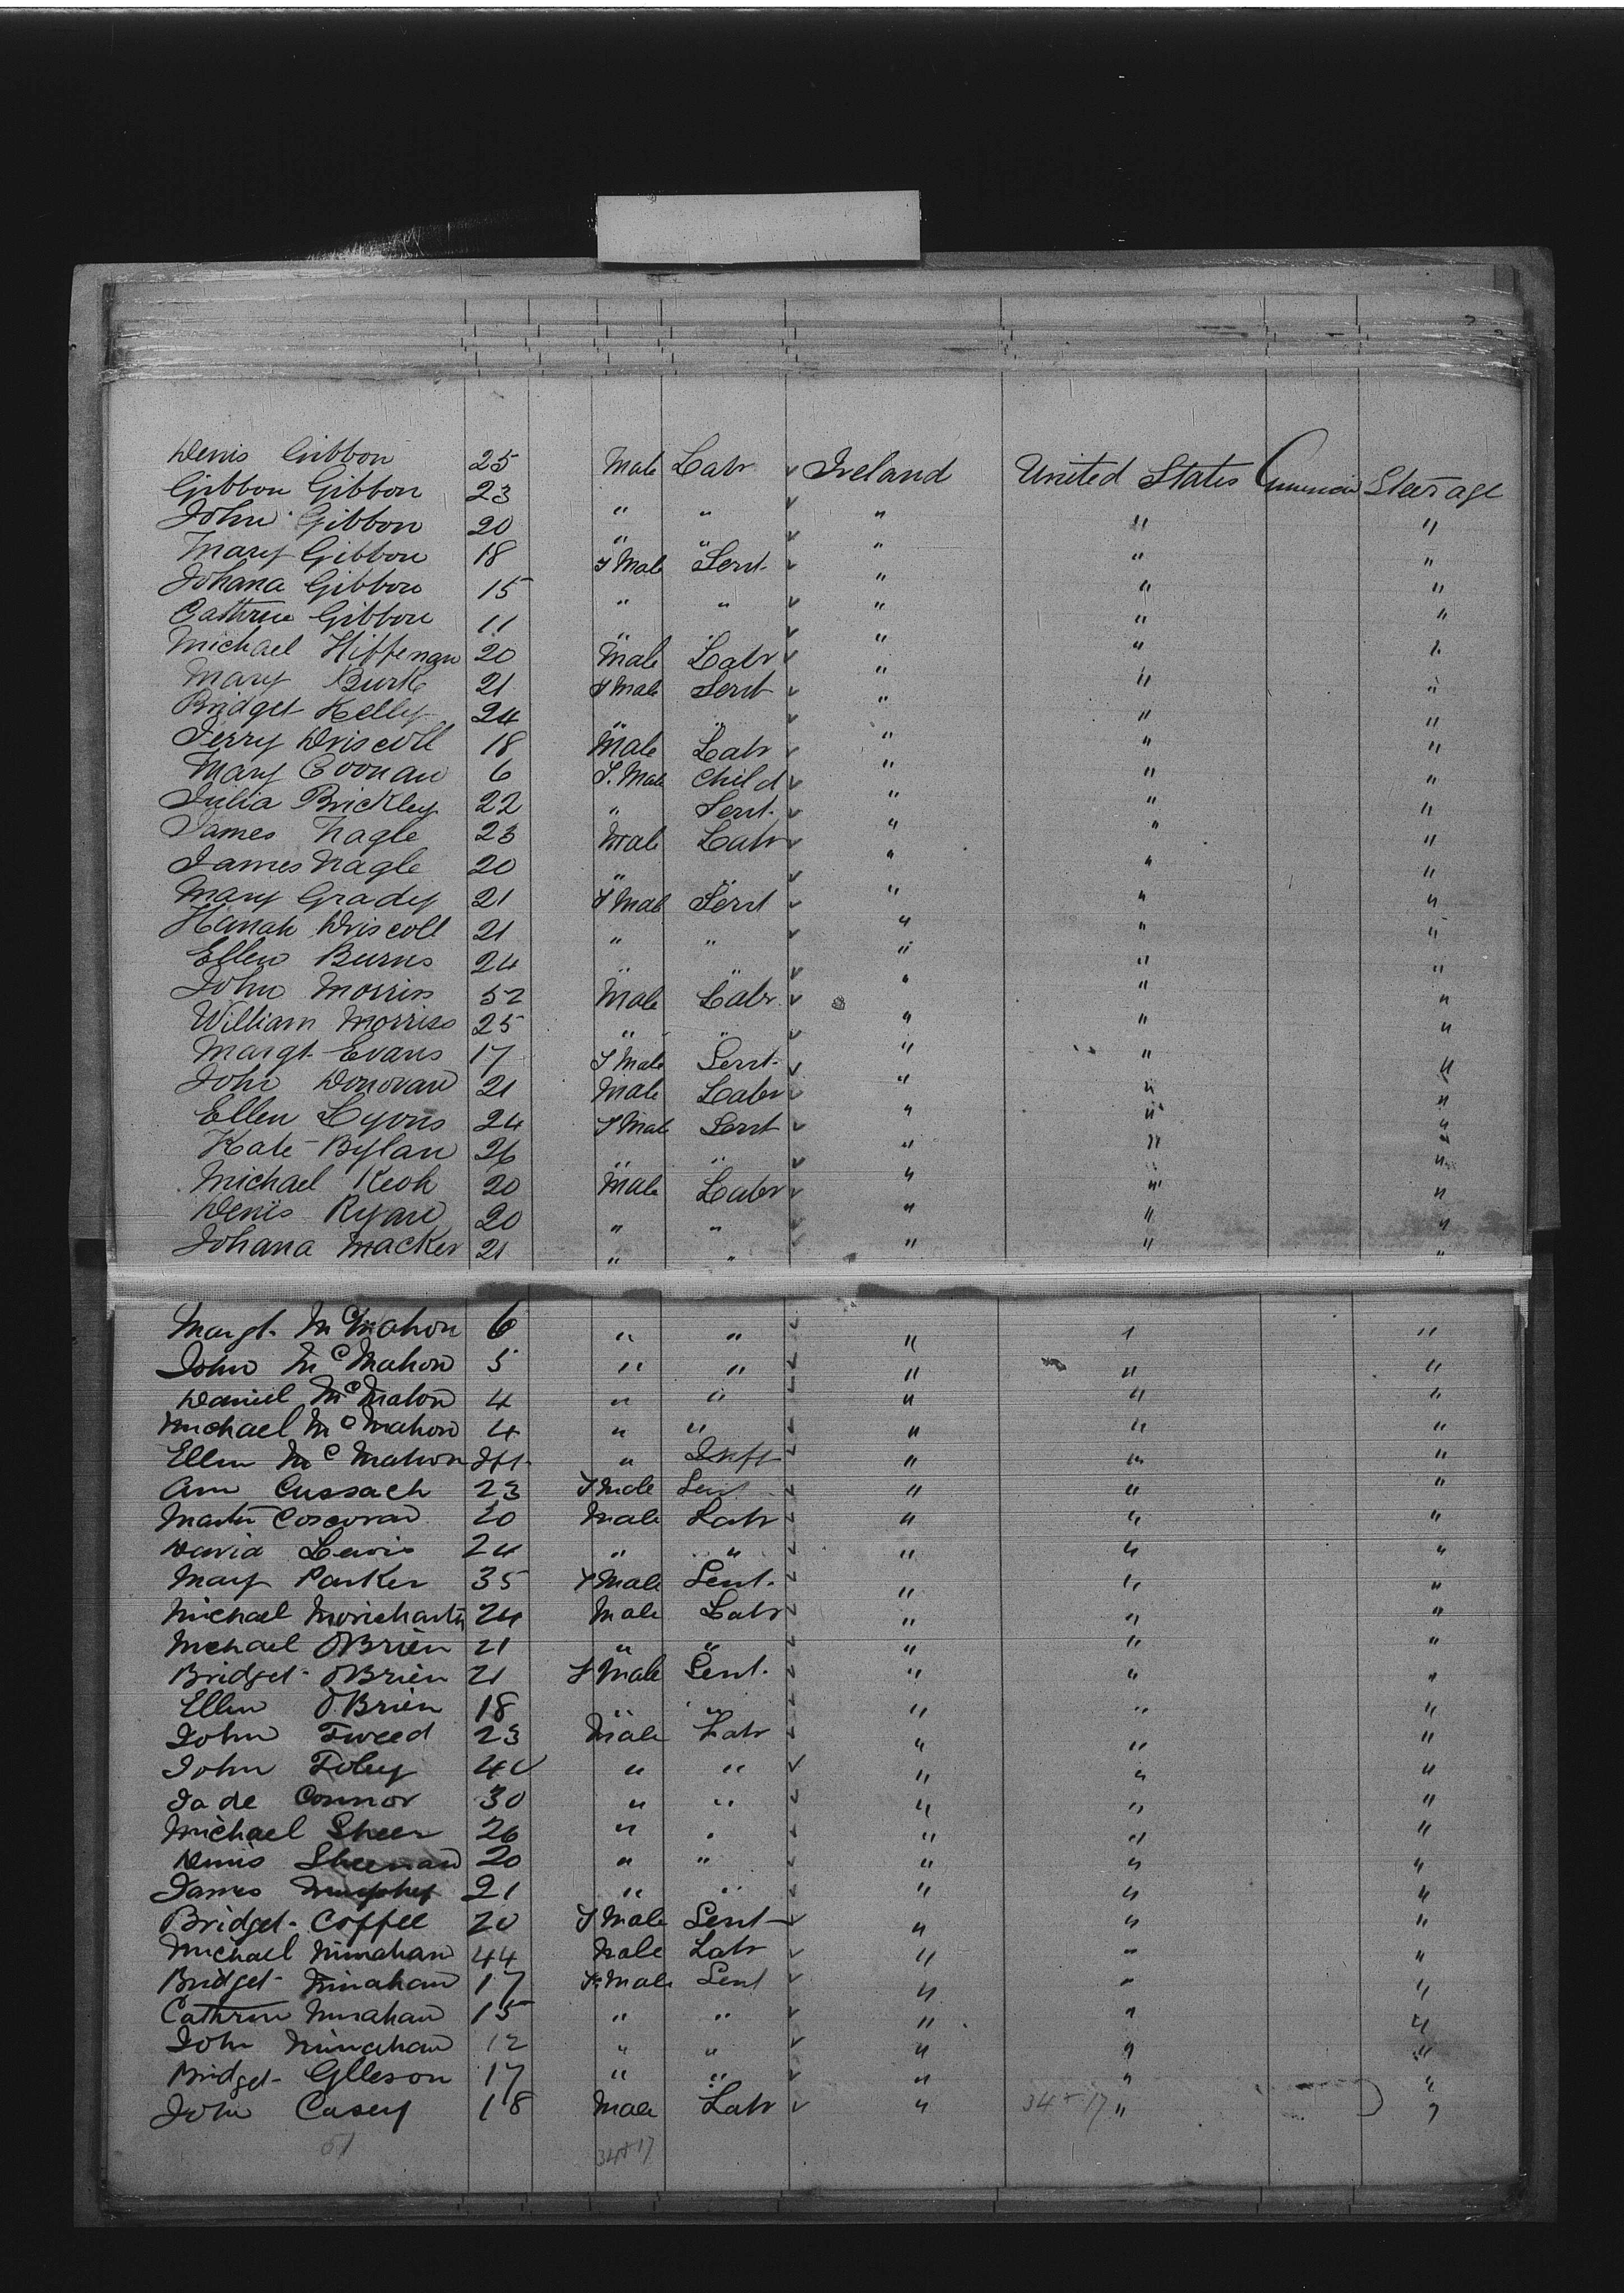 Denis Gibbon 25 Male Labr ✓ Ireland United States Steerage
Gibbon Gibbon 23 " " ✓ " " "
John Gibbon 20 " " ✓ " " "
Mary Gibbon 18 F Male Servt ✓ " " "
Johana Gibbon 15 " " ✓ " " "
Cathrine Gibbon 11 " " ✓ " " "
Michael Hiffenan 20 Male Labr ✓ " " "
Mary Burke 21 F Male Servt ✓ " " "
Bridget Kelly 24 " " ✓ " " "
Jerry Driscoll 18 Male Labr ✓ " " "
Mary Coonan 6 F. Male Child ✓ " " "
Julia Brickley 22 " Servt. ✓ " " "
James Nagle 23 Male Labr ✓ " " "
James Nagle 20 " " ✓ " " "
Mary Grady 21 F Male Servt ✓ " " "
Hanah Driscoll 21 " " ✓ " " "
Ellen Burns 24 " " ✓ " " "
John Morriss 52 Male Labr. ✓ " " "
William Morriss 25 " " ✓ " " "
Margt. Evans 17 F Male Servt. ✓ " " "
John Donovan 21 Male Labr ✓ " " "
Ellen Lyons 24 F Male Servt ✓ " " "
Kate Bylan 26 " " ✓ " " "
Michael Keoh 20 Male Labr ✓ " " "
Denis Ryan 20 " " ✓ " " "
Johana Macker 21 " " " " "
Margt. McMahon 6 " " ✓ " " "
John McMahon 5 " " ✓ " " "
Daniel McMahon 4 " " ✓ " " "
Michael McMahon 4 " " ✓ " " "
Ellen McMahon " Inft ✓ " " "
Ann Cussach 23 F Male Servt ✓ " " "
Martin Corcoran 20 Male Labr ✓ " " "
David Lewis 24 " " ✓ " " "
Mary Parker 35 F Male Servt. ✓ " " "
Michael 24 Male Labr ✓ " " "
Michael O'Brien 21 " " ✓ " " "
Bridget O'Brien 21 F Male Servt. ✓ " " "
Ellen O'Brien 18 " " ✓ " " "
John Tweed 23 Male Labr ✓ " " "
John Foley 40 " " ✓ " " "
Jade Connor 30 " " ✓ " " "
Michael Sheen 26 " " ✓ " " "
Denis Sheenan 20 " " ✓ " " "
James Murphy 21 " " ✓ " " "
Bridget Coffee 20 F Male Servt ✓ " " "
Michael Minahan 44 Male Labr ✓ " " "
Bridget Minahan 17 F. Male Servt ✓ " " "
Cathrine Minahan 15 " " ✓ " " "
John Minahan 12 " " ✓ " " "
Bridget Glleson 17 " " ✓ " " "
John Casey 18 Male Labr ✓ " 34+17 " "
51 34+17